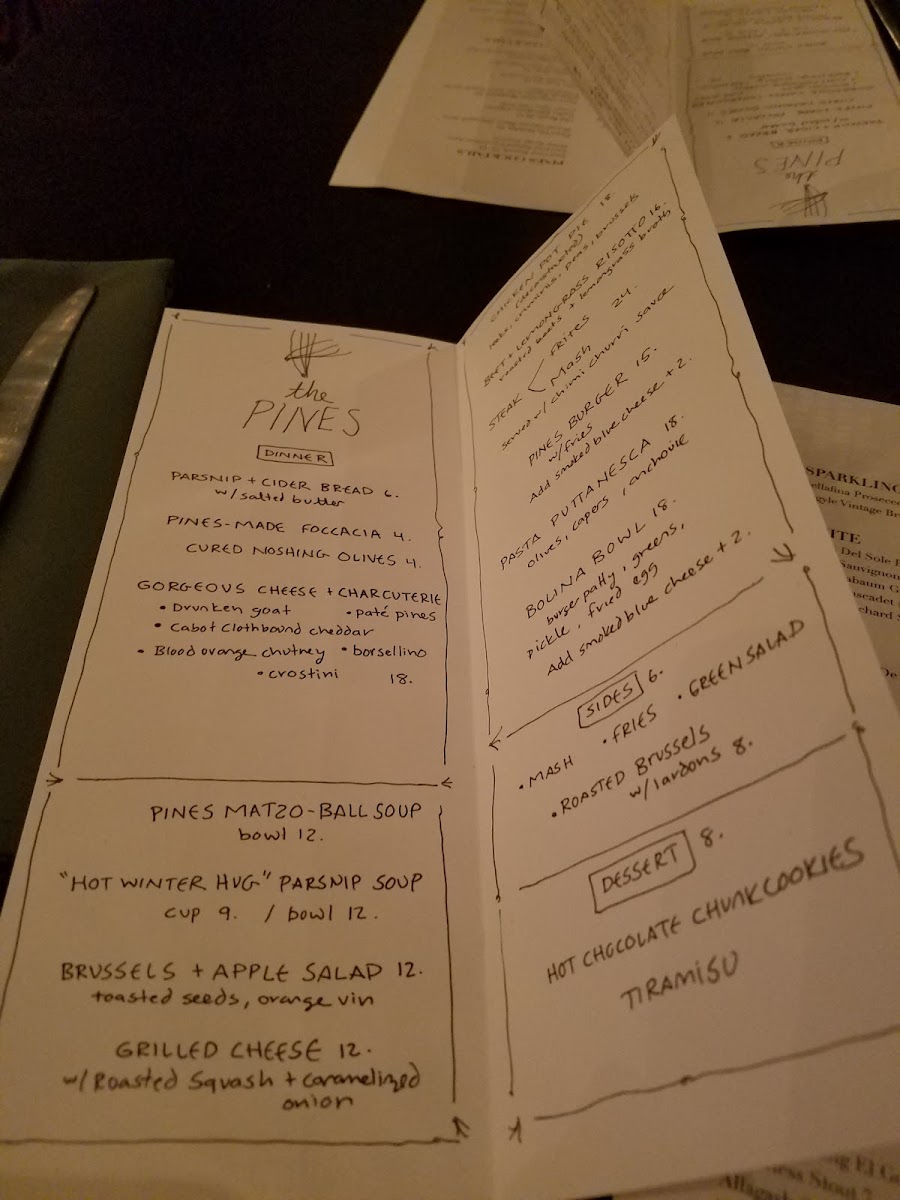 the
PINES
DINNER
PARSNIP + CIDER BREAD 6.
w/ salted butter
PINES-MADE FOCCACIA 4.
CURED NOSHING OLIVES 4.
GORGEOUS CHEESE + CHARCUTERIE
• Drunken goat • paté pines
• Cabot Clothbound cheddar
• Blood orange chutney • borsellino
• crostini 18.
PINES MATZO-BALL SOUP
bowl 12.
"HOT WINTER HUG" PARSNIP SOUP
cup 9. / bowl 12.
BRUSSELS + APPLE SALAD 12.
toasted seeds, orange vin
GRILLED CHEESE 12.
w/ Roasted Squash + caramelized
onion
CHICKEN POT PIE 18.
(deconstructed)
peas, brussels
BEET + LEMONGRASS RISOTTO 16.
roasted beets + lemongrass broth
STEAK FRITES 24.
Mash
served w/ chimi churri sauce
PINES BURGER 15.
w/ fries
Add smoked blue cheese + 2.
PASTA PUTTANESCA 18.
olives, capers, anchovie
BOLINA BOWL 18.
burger patty, greens,
pickle, fried egg
Add smoked blue cheese + 2.
SIDES 6.
• MASH • FRIES • GREEN SALAD
• ROASTED Brussels
w/ lardons 8.
DESSERT 8.
HOT CHOCOLATE CHUNK COOKIES
TIRAMISU
the
PINES
DINNER
SPARKLING
Prosecco
Vintage
Del Sole
Stout